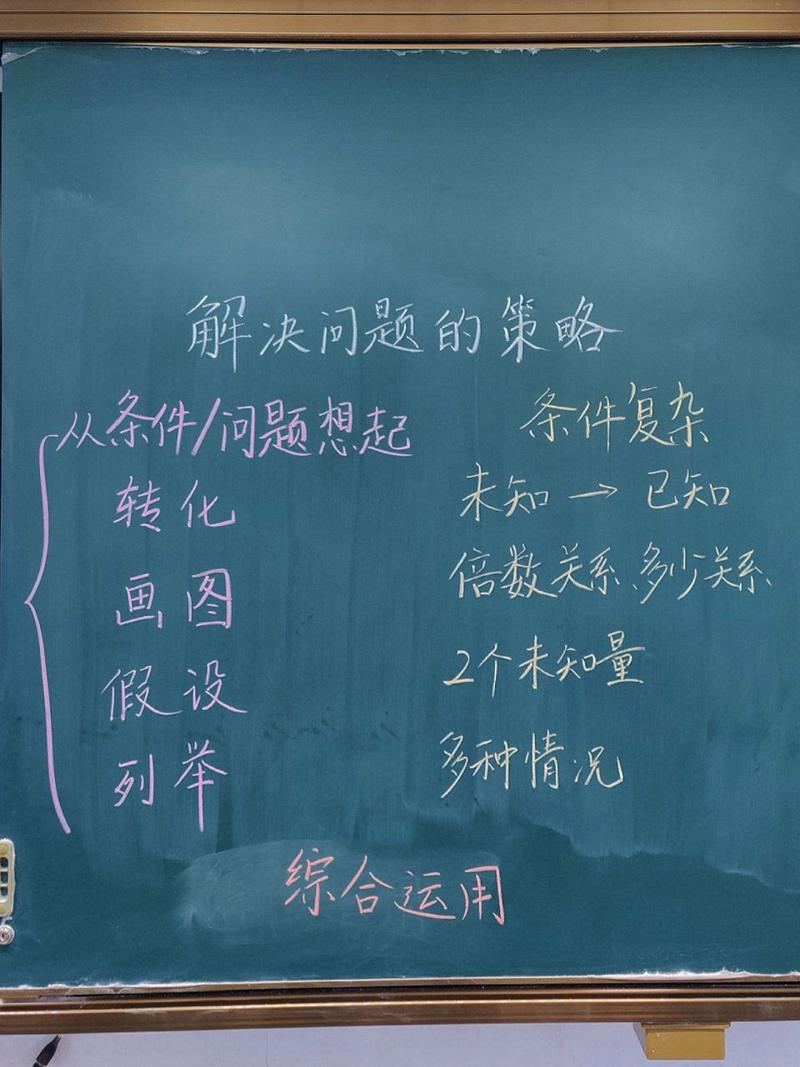 解决问题的策略
从条件/问题想起 条件复杂
转化 未知→已知
画图 倍数关系、多少关系
假设 2个未知量
列举 多种情况
综合运用